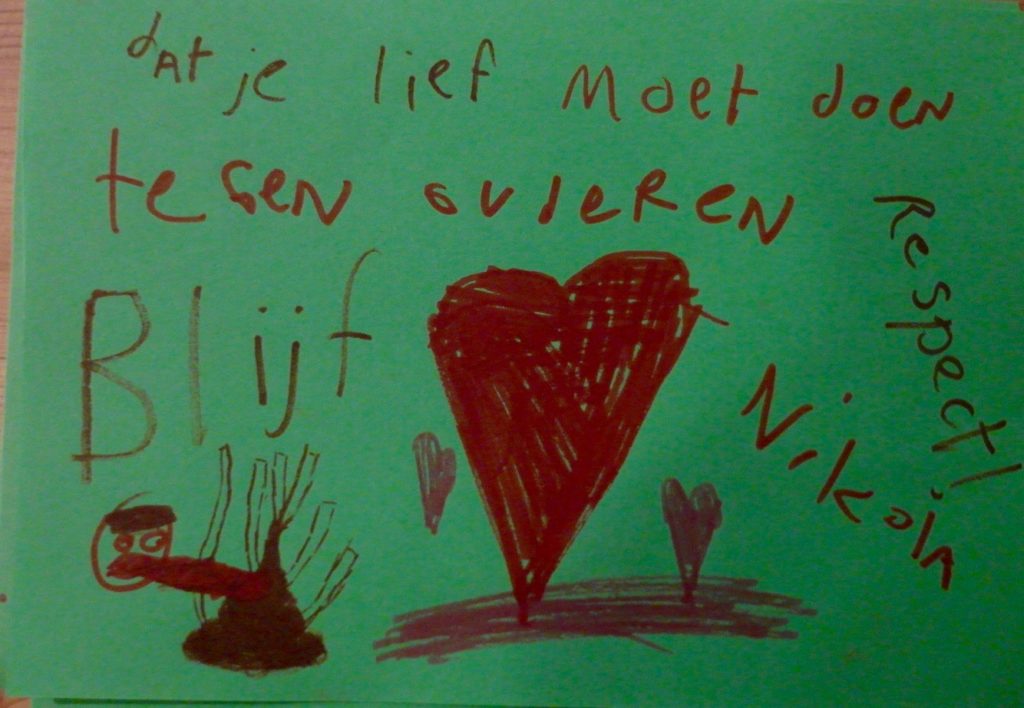 dAt je lief Moet doen
tegen ouderen
Respect!
Blijf
Nikola